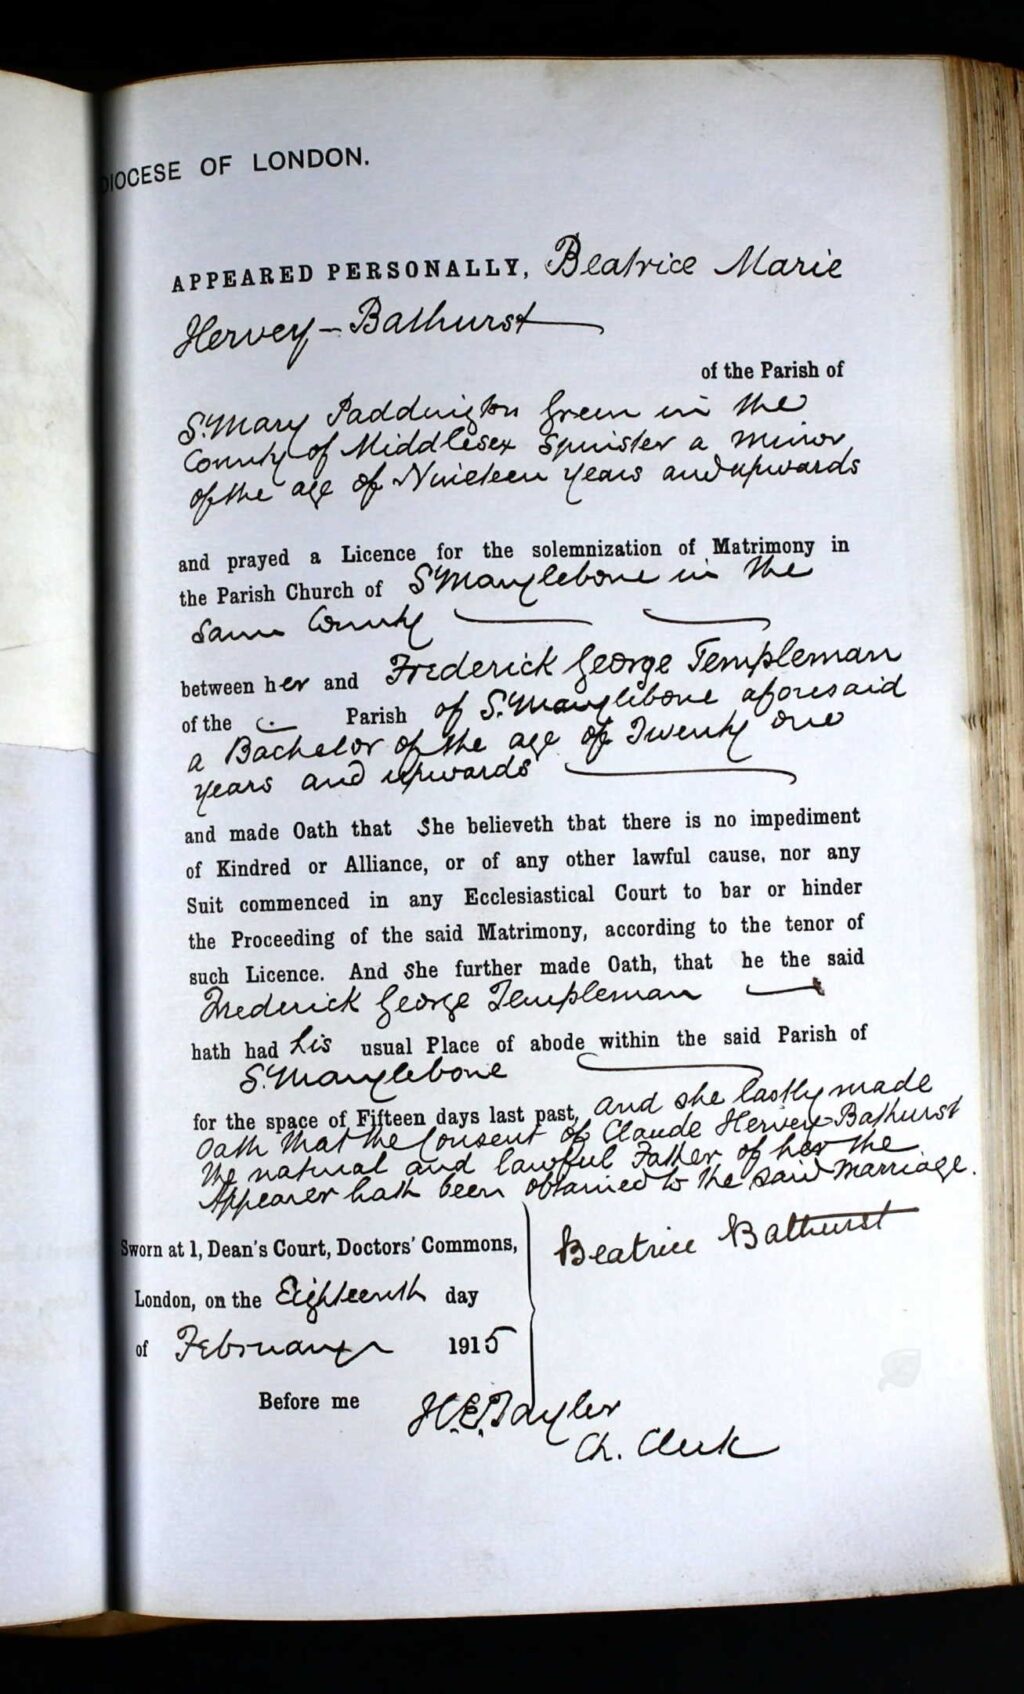 DIOCESE OF LONDON.
APPEARED PERSONALLY, Beatrice Marie
Hervey-Bathurst
of the Parish of
St. Mary Paddington Green in the
County of Middlesex Spinster a minor
of the age of Nineteen years and upwards
and prayed a Licence for the solemnization of Matrimony in
the Parish Church of St Marylebone in the
same County
between her and Frederick George Templeman
of the Parish of St. Marylebone aforesaid
a Bachelor of the age of Twenty one
years and upwards
and made Oath that She believeth that there is no impediment
of Kindred or Alliance, or of any other lawful cause, nor any
Suit commenced in any Ecclesiastical Court to bar or hinder
the Proceeding of the said Matrimony, according to the tenor of
such Licence. And She further made Oath, that he the said
Frederick George Templeman
hath had his usual Place of abode within the said Parish of
St. Marylebone
for the space of Fifteen days last past, and she lastly made
Oath that the Consent of Claude Hervey-Bathurst
the natural and lawful Father of her the
Appearer hath been obtained to the said Marriage.
Sworn at 1, Dean's Court, Doctors' Commons,
Beatrice Bathurst
London, on the Eighteenth day
of February 1915
Before me
Taylor
Ch. Clerk